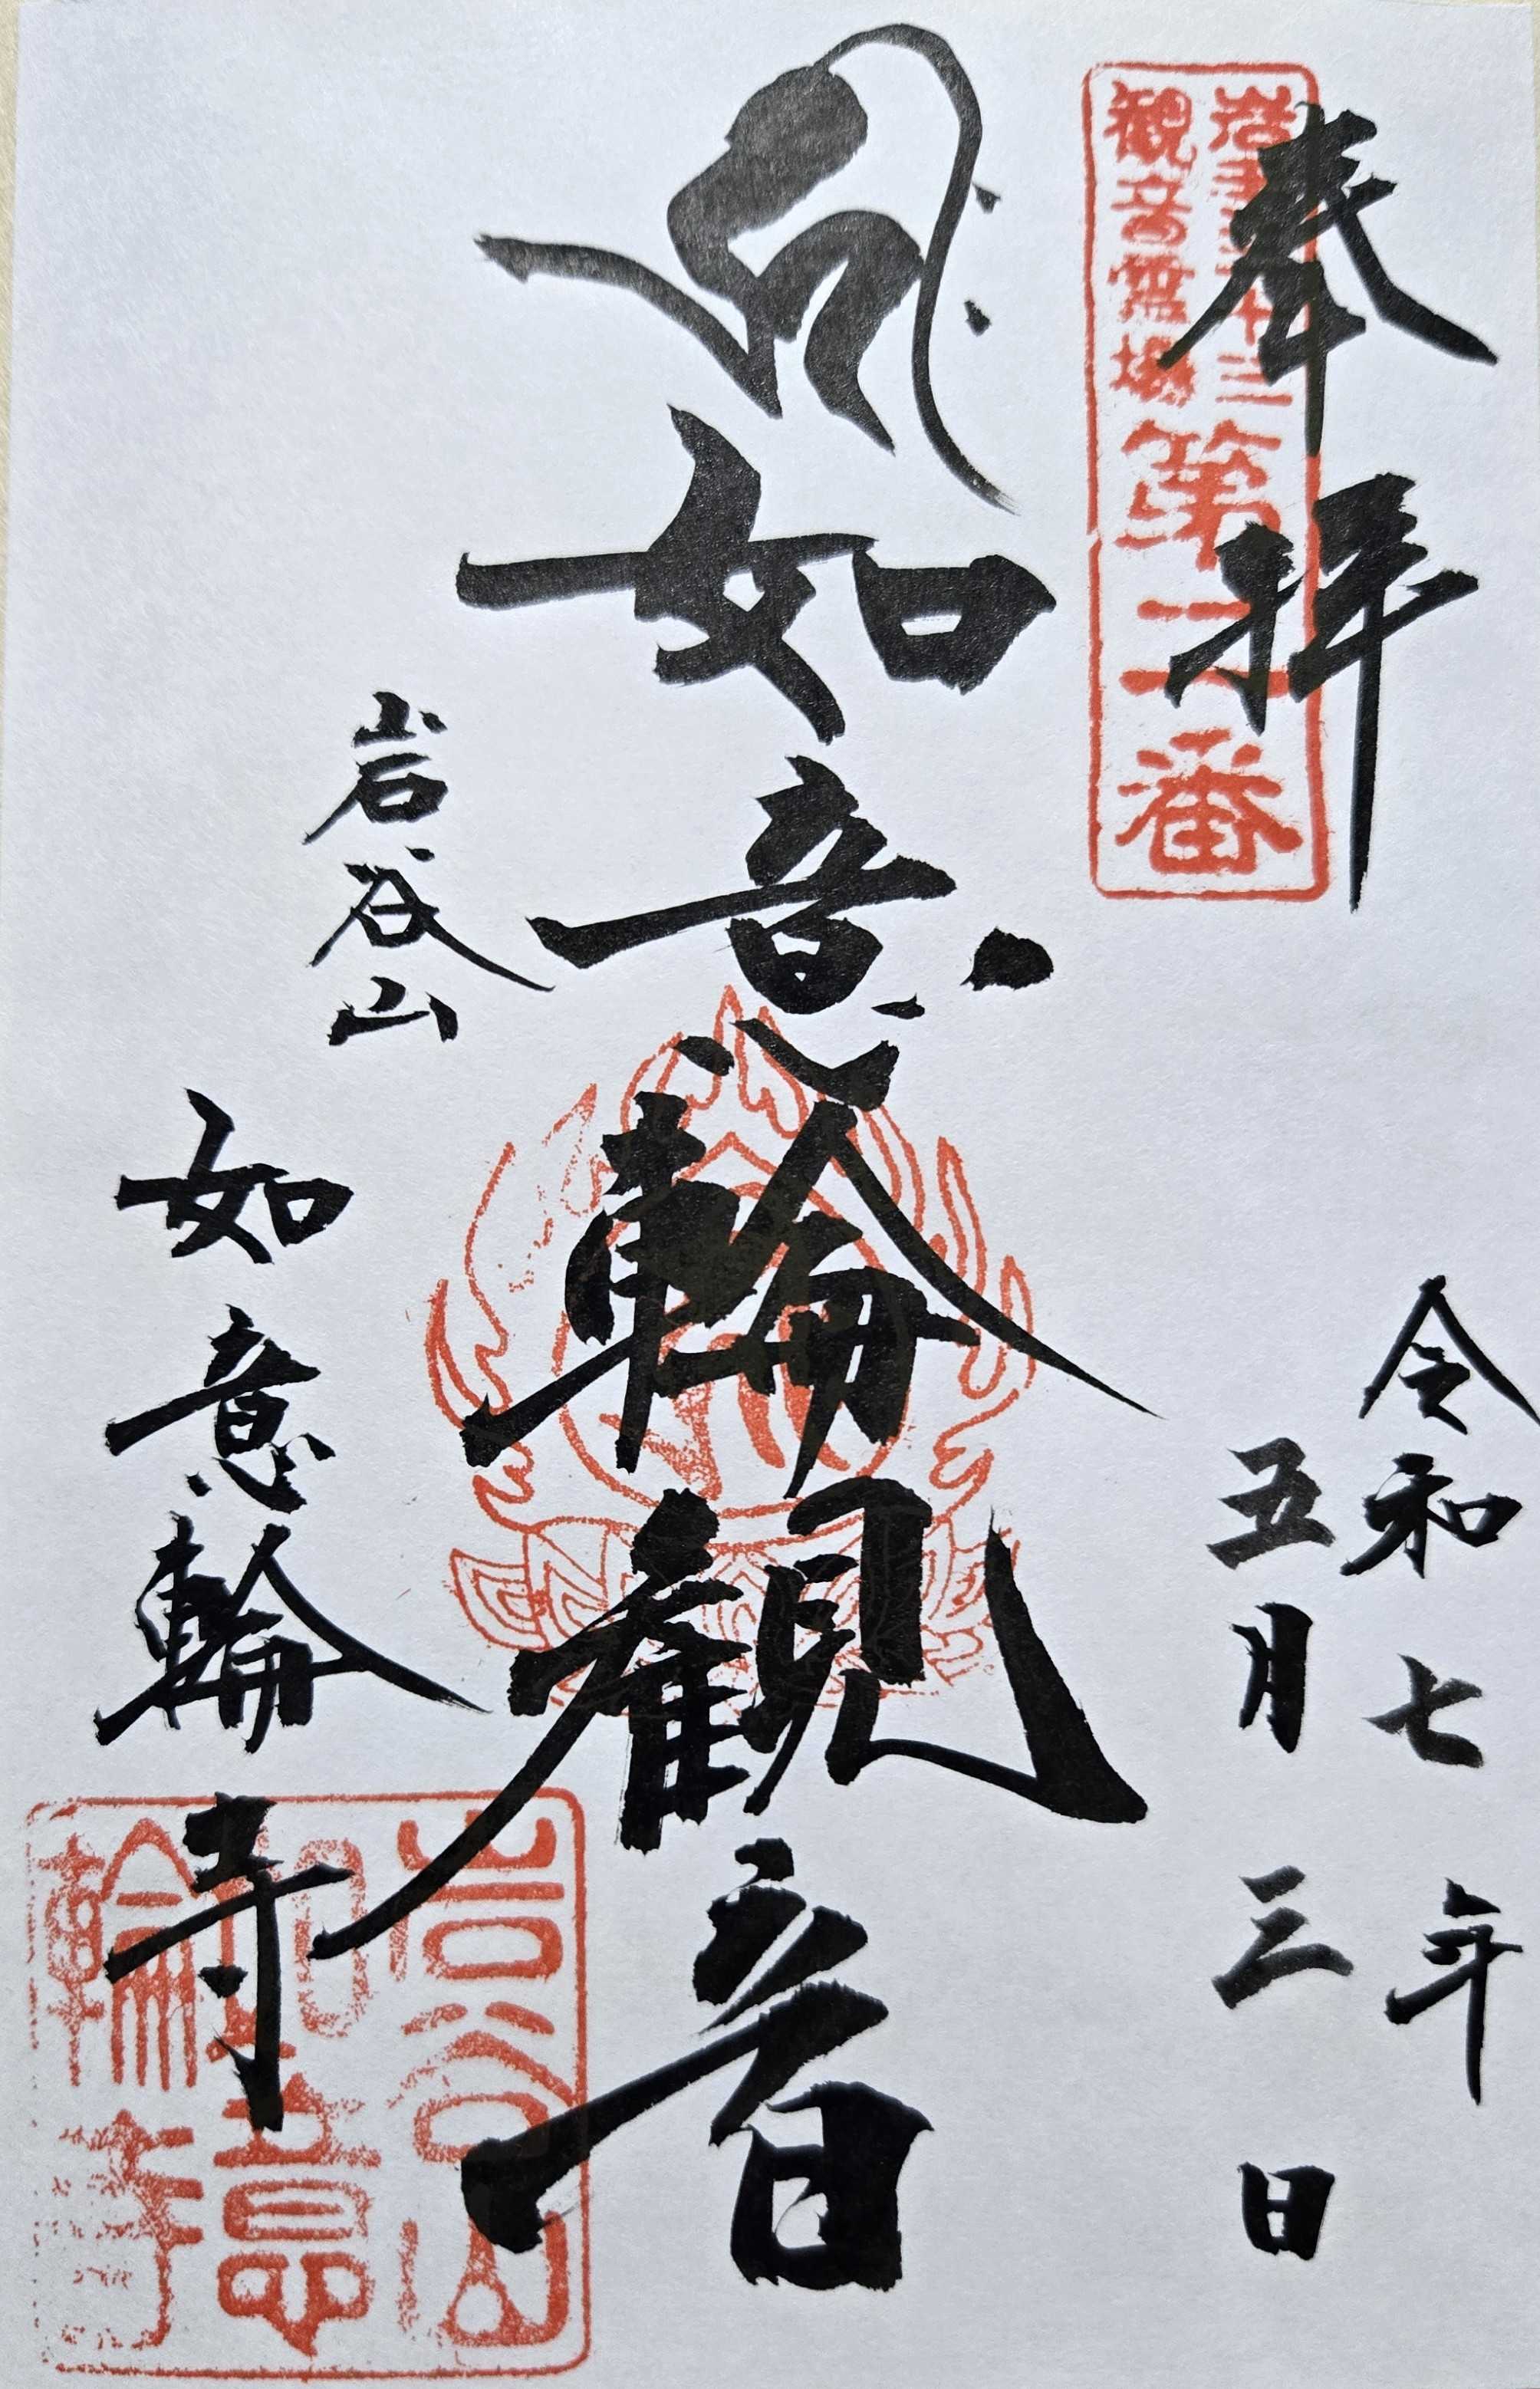 奉拝
十三
観音霊場
第二番
令和七年
五月三日
如意輪観音
岩谷山
如意輪寺
岩谷山
如意
輪寺